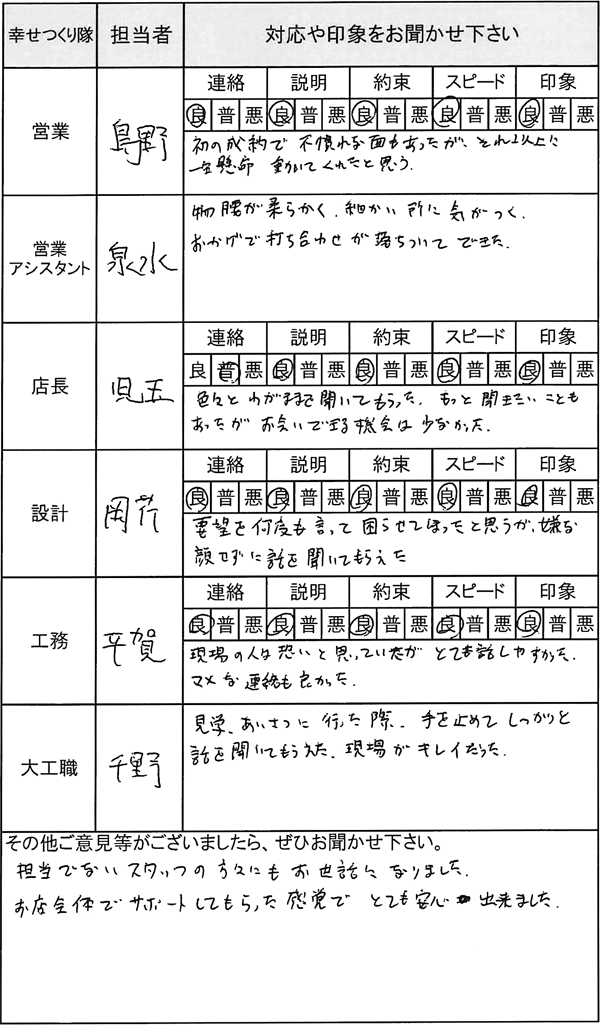 幸せつくり隊 担当者 対応や印象をお聞かせ下さい
連絡 説明 約束 スピード 印象
良 普 悪 良 普 悪 良 普 悪 良 普 悪 良 普 悪
営業 島野
初の成約で不慣れな面もあったが、それ以上に
一生懸命 動いてくれたと思う.
営業アシスタント 泉水
物腰が柔らかく、細かい所に気がつく、
おかげで打ち合わせが落ちついてできた.
連絡 説明 約束 スピード 印象
良 普 悪 良 普 悪 良 普 悪 良 普 悪 良 普 悪
店長 児玉
色々とわがままを聞いてもらった. もっと聞きたいことも
あったがお会いできる機会は少なかった.
連絡 説明 約束 スピード 印象
良 普 悪 良 普 悪 良 普 悪 良 普 悪 良 普 悪
設計 岡芹
要望を何度も言って困らせてしまったと思うが、嫌な
顔せずに話を聞いてもらえた
連絡 説明 約束 スピード 印象
良 普 悪 良 普 悪 良 普 悪 良 普 悪 良 普 悪
工務 平賀
現場の人は恐いと思っていたが とても話しやすかった.
マメな連絡も良かった.
大工職 千野
見学、あいさつに行った際、手を止めてしっかりと
話を聞いてもらえた. 現場がキレイだった.
その他ご意見等がございましたら、ぜひお聞かせ下さい。
担当でないスタッフの方々にもお世話になりました.
お店全体でサポートしてもらった感覚で とても安心 出来ました.